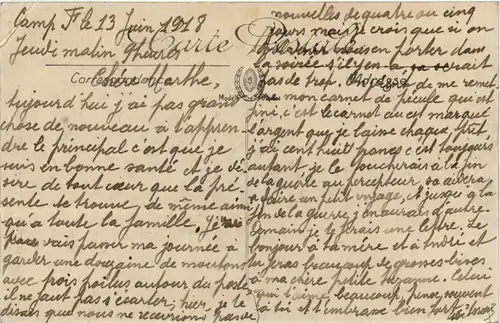 Camp F le 13 Juin 1918
Jeudi matin 9 heures
Carte Postale
Chère Marthe,
Correspondance
Adresse
aujourd'hui j'ai pas grand
chose de nouveau à t'appren
dre le principal c'est que je
suis en bonne santé et je dé
sire de tout cœur que la pré
sente te trouve de même ainsi
qu'à toute la famille, je
vais passer ma journée à
garder une douzaine de moutons
avec trois poilus autour du poste
il ne faut pas s'écarter; hier, je te
disais que nous ne recevrions pas de
nouvelles de quatre ou cinq
jours mais je crois que si on
en porter dans
la soirée s'il y en a, ça serait
pas de trop. de me reme
mon carnet de pécule qui est
fini, c'est le carnet où est marqué
l'argent que je laisse chaque prêt,
j'ai cent huit francs c'est toujours
autant, je le toucherais à la fin
de la guerre au percepteur, ça aidera
à faire un petit voyage, et jusqu'à la
fin de la guerre j'en aurais d'autre
Demain je te ferais une lettre. Le
bonjour à ta mère et à André et
tu feras beaucoup de grosses bises
à ma chère petite Suzanne. Celui
qui t'aime beaucoup pense souvent
à toi et t'embrasse bien fort